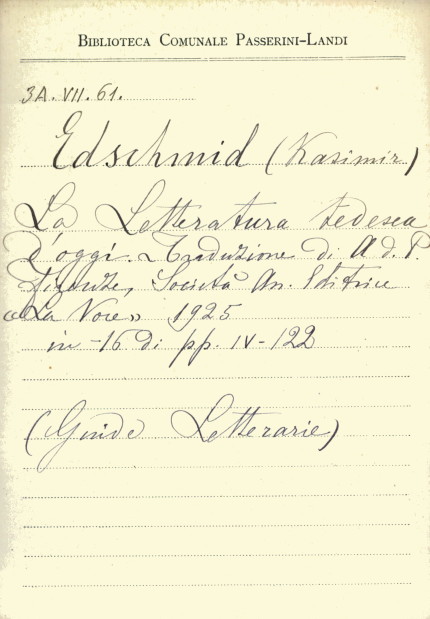 BIBLIOTECA COMUNALE PASSERINI-LANDI
3A. VII. 61.
Edschmid (Kasimir)
La Letteratura tedesca
d'oggi. Traduzione di A d. P.
Firenze, Società An. Editrice
«La Voce» 1925
in-16 di pp. IV-122
(Guide Letterarie)